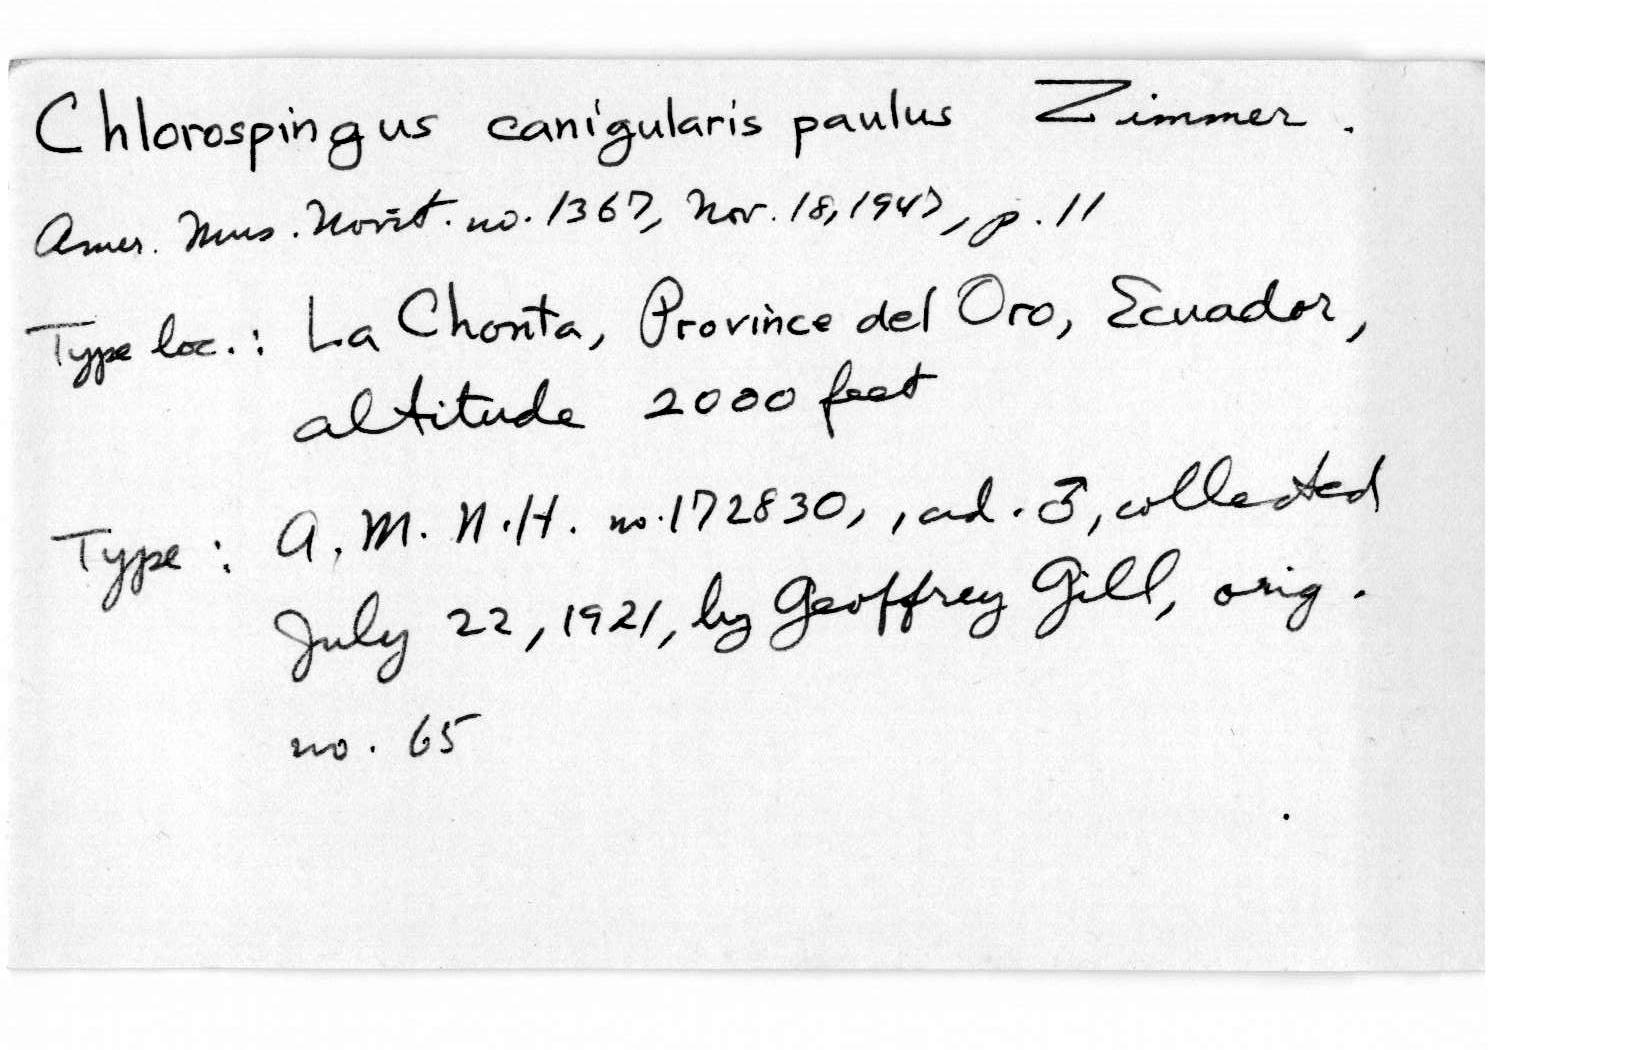 Chlorospingus canigularis paulus Zimmer.
Amer. Mus. Novit. no. 1367, Nov. 18, 1947, p. 11
Type loc.: La Chonta, Province del Oro, Ecuador,
altitude 2000 feet
Type: A. M. N. H. no. 172830, , ad. ♂, collected
July 22, 1921, by Geoffrey Gill, orig.
no. 65